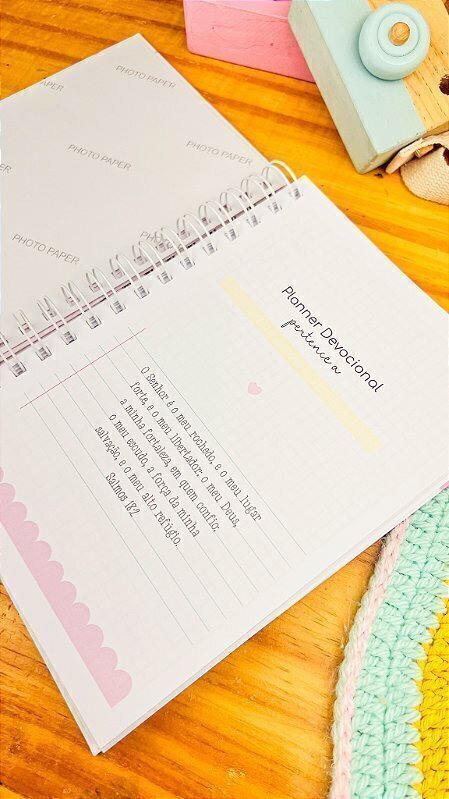 PHOTO PAPER
PAPER
PHOTO PAPER
PHOTO PAPER
PHOTO PAPER
Planner Devocional
pertence a
O Senhor é o meu rochedo, e o meu lugar
forte, e o meu libertador; o meu Deus,
a minha fortaleza, em quem confio;
o meu escudo, a força da minha
salvação, e o meu alto refúgio.
Salmos 18:2